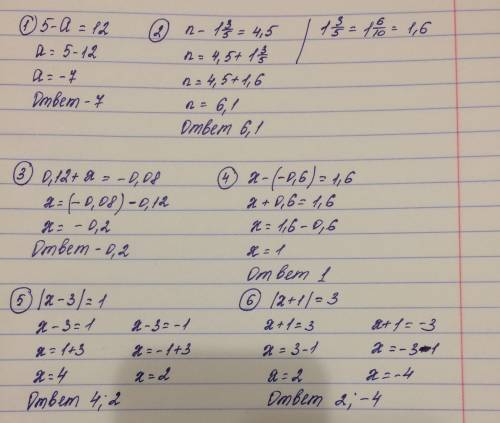 ① 5-a=12
a=5-12
a=-7
Ответ -7
② n-1 3/5=4,5
n=4,5+1 3/5
n=4,5+1,6
n=6,1
Ответ 6,1
1 3/5=1 6/10=1,6
③ 0,12+x=-0,08
x=(-0,08)-0,12
x=-0,2
Ответ -0,2
④ x-(-0,6)=1,6
x+0,6=1,6
x=1,6-0,6
x=1
Ответ 1
⑤ |x-3|=1
x-3=1 x-3=-1
x=1+3 x=-1+3
x=4 x=2
Ответ 4; 2
⑥ |x+1|=3
x+1=3 x+1=-3
x=3-1 x=-3-1
x=2 x=-4
Ответ 2; -4